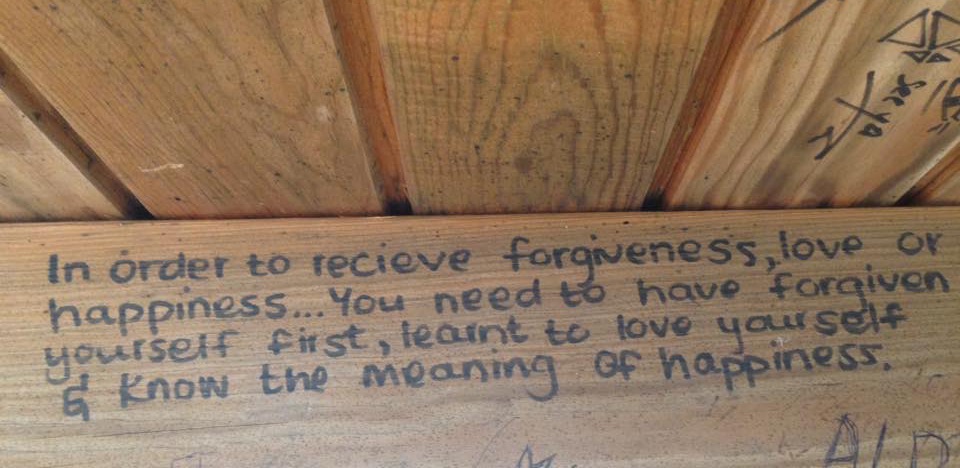 In order to recieve forgiveness, love or
happiness... You need to have forgiven
yourself first, learnt to love yourself
& know the meaning of happiness.
see ya
ALD